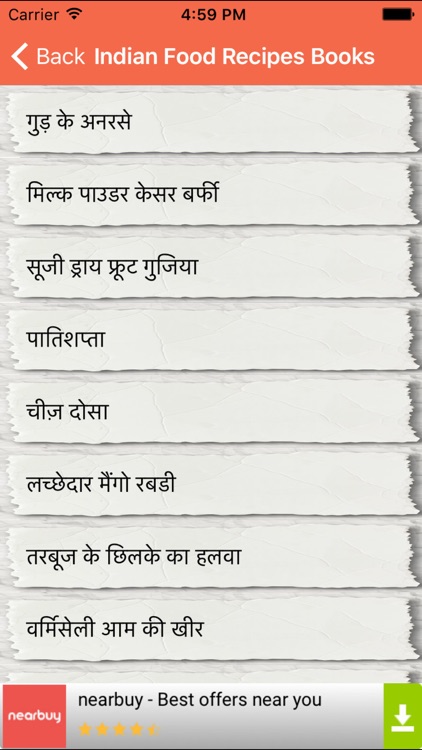 Carrier 4:59 PM
Back Indian Food Recipes Books
गुड़ के अनरसे
मिल्क पाउडर केसर बर्फी
सूजी ड्राय फ्रूट गुजिया
पातिशप्ता
चीज़ दोसा
लच्छेदार मैंगो रबडी
तरबूज के छिलके का हलवा
वर्मिसेली आम की खीर
nearbuy
nearbuy - Best offers near you